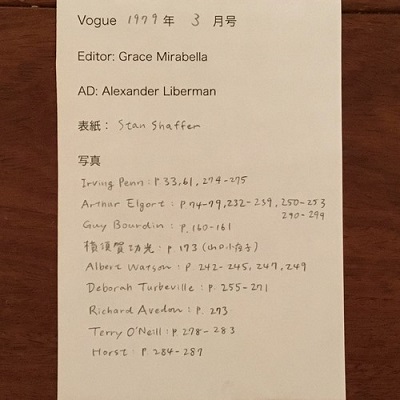 Vogue 1979年 3月号
Editor: Grace Mirabella
AD: Alexander Liberman
表紙： Stan Shaffer
写真
Irving Penn : P 33, 61, 274-275
Arthur Elgort : P 74-79, 232-239, 250-253
290-299
Guy Bourdin : P. 160-161
横須賀功光 : p. 173 (山口小夜子)
Albert Watson : P 242-245, 247, 249
Deborah Turbeville : P. 255-271
Richard Avedon : P. 273
Terry O'Neill : P. 278-283
Horst : P. 284-287